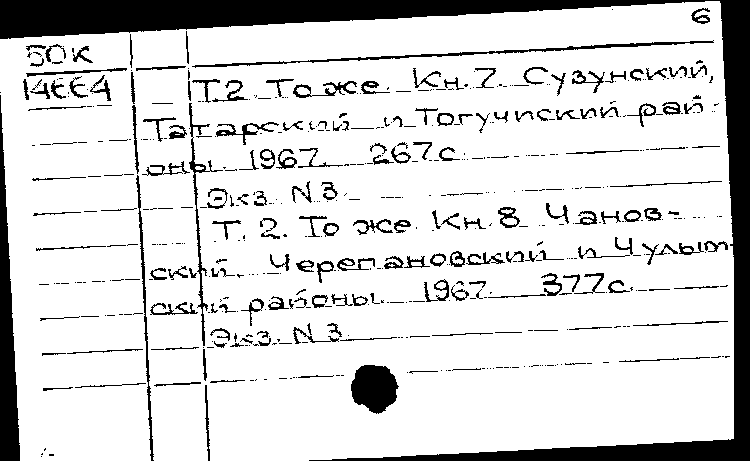 6
50К
14664
Т.2. То же. Кн.7. Сузунский,
Татарский и Тогучинский рай-
оны. 1967. 267с.
Экз. N 3.
Т. 2. То же. Кн. 8 Чанов-
ский, Черепановский и Чулым-
ский районы. 1967. 377с.
Экз. N 3